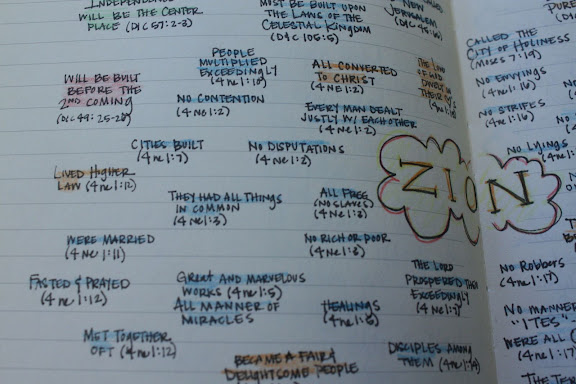 INDEPENDENCE
WILL BE THE CENTER
PLACE (D&C 57:2-3)
MUST BE BUILT UPON
THE LAWS OF THE
CELESTIAL KINGDOM
(D&C 105:5)
NEW
JERUSALEM
(D&C 45:66)
CALLED THE
CITY OF HOLINESS
(MOSES 7:19)
WILL BE BUILT
BEFORE THE
2ND COMING
(D&C 49:25-28)
PEOPLE
MULTIPLIED
EXCEEDINGLY
(4 NE 1:10)
ALL CONVERTED
TO CHRIST
(4 NE 1:2)
THE LOVE
OF GOD
DWELT IN
THEIR
NO ENVYINGS
(4 NE 1:16)
NO CONTENTION
(4 NE 1:2)
EVERY MAN DEALT
JUSTLY W/ EACH OTHER
(4 NE 1:2)
NO STRIFES
(4 NE 1:16)
CITIES BUILT
(4 NE 1:7)
NO DISPUTATIONS
(4 NE 1:2)
NO LYINGS
ZION
LIVED HIGHER
LAW (4 NE 1:12)
THEY HAD ALL THINGS
IN COMMON
(4 NE 1:3)
ALL FREE
(NO SLAVES)
(4 NE 1:3)
WERE MARRIED
(4 NE 1:11)
NO RICH OR POOR
(4 NE 1:3)
FASTED & PRAYED
(4 NE 1:12)
GREAT AND MARVELOUS
WORKS (4 NE 1:5)
ALL MANNER OF
MIRACLES
HEALINGS
(4 NE 1:5)
THE LORD
PROSPERED THEM
EXCEEDINGLY
(4 NE 1:7)
NO ROBBERS
(4 NE 1:17)
NO MANNER
"ITES"
WERE ALL
(4 NE 1:17)
MET TOGETHER
OFT (4 NE 1:12)
BECAME A FAIR &
DELIGHTSOME PEOPLE
DISCIPLES AMONG
THEM (4 NE 1:14)
THE